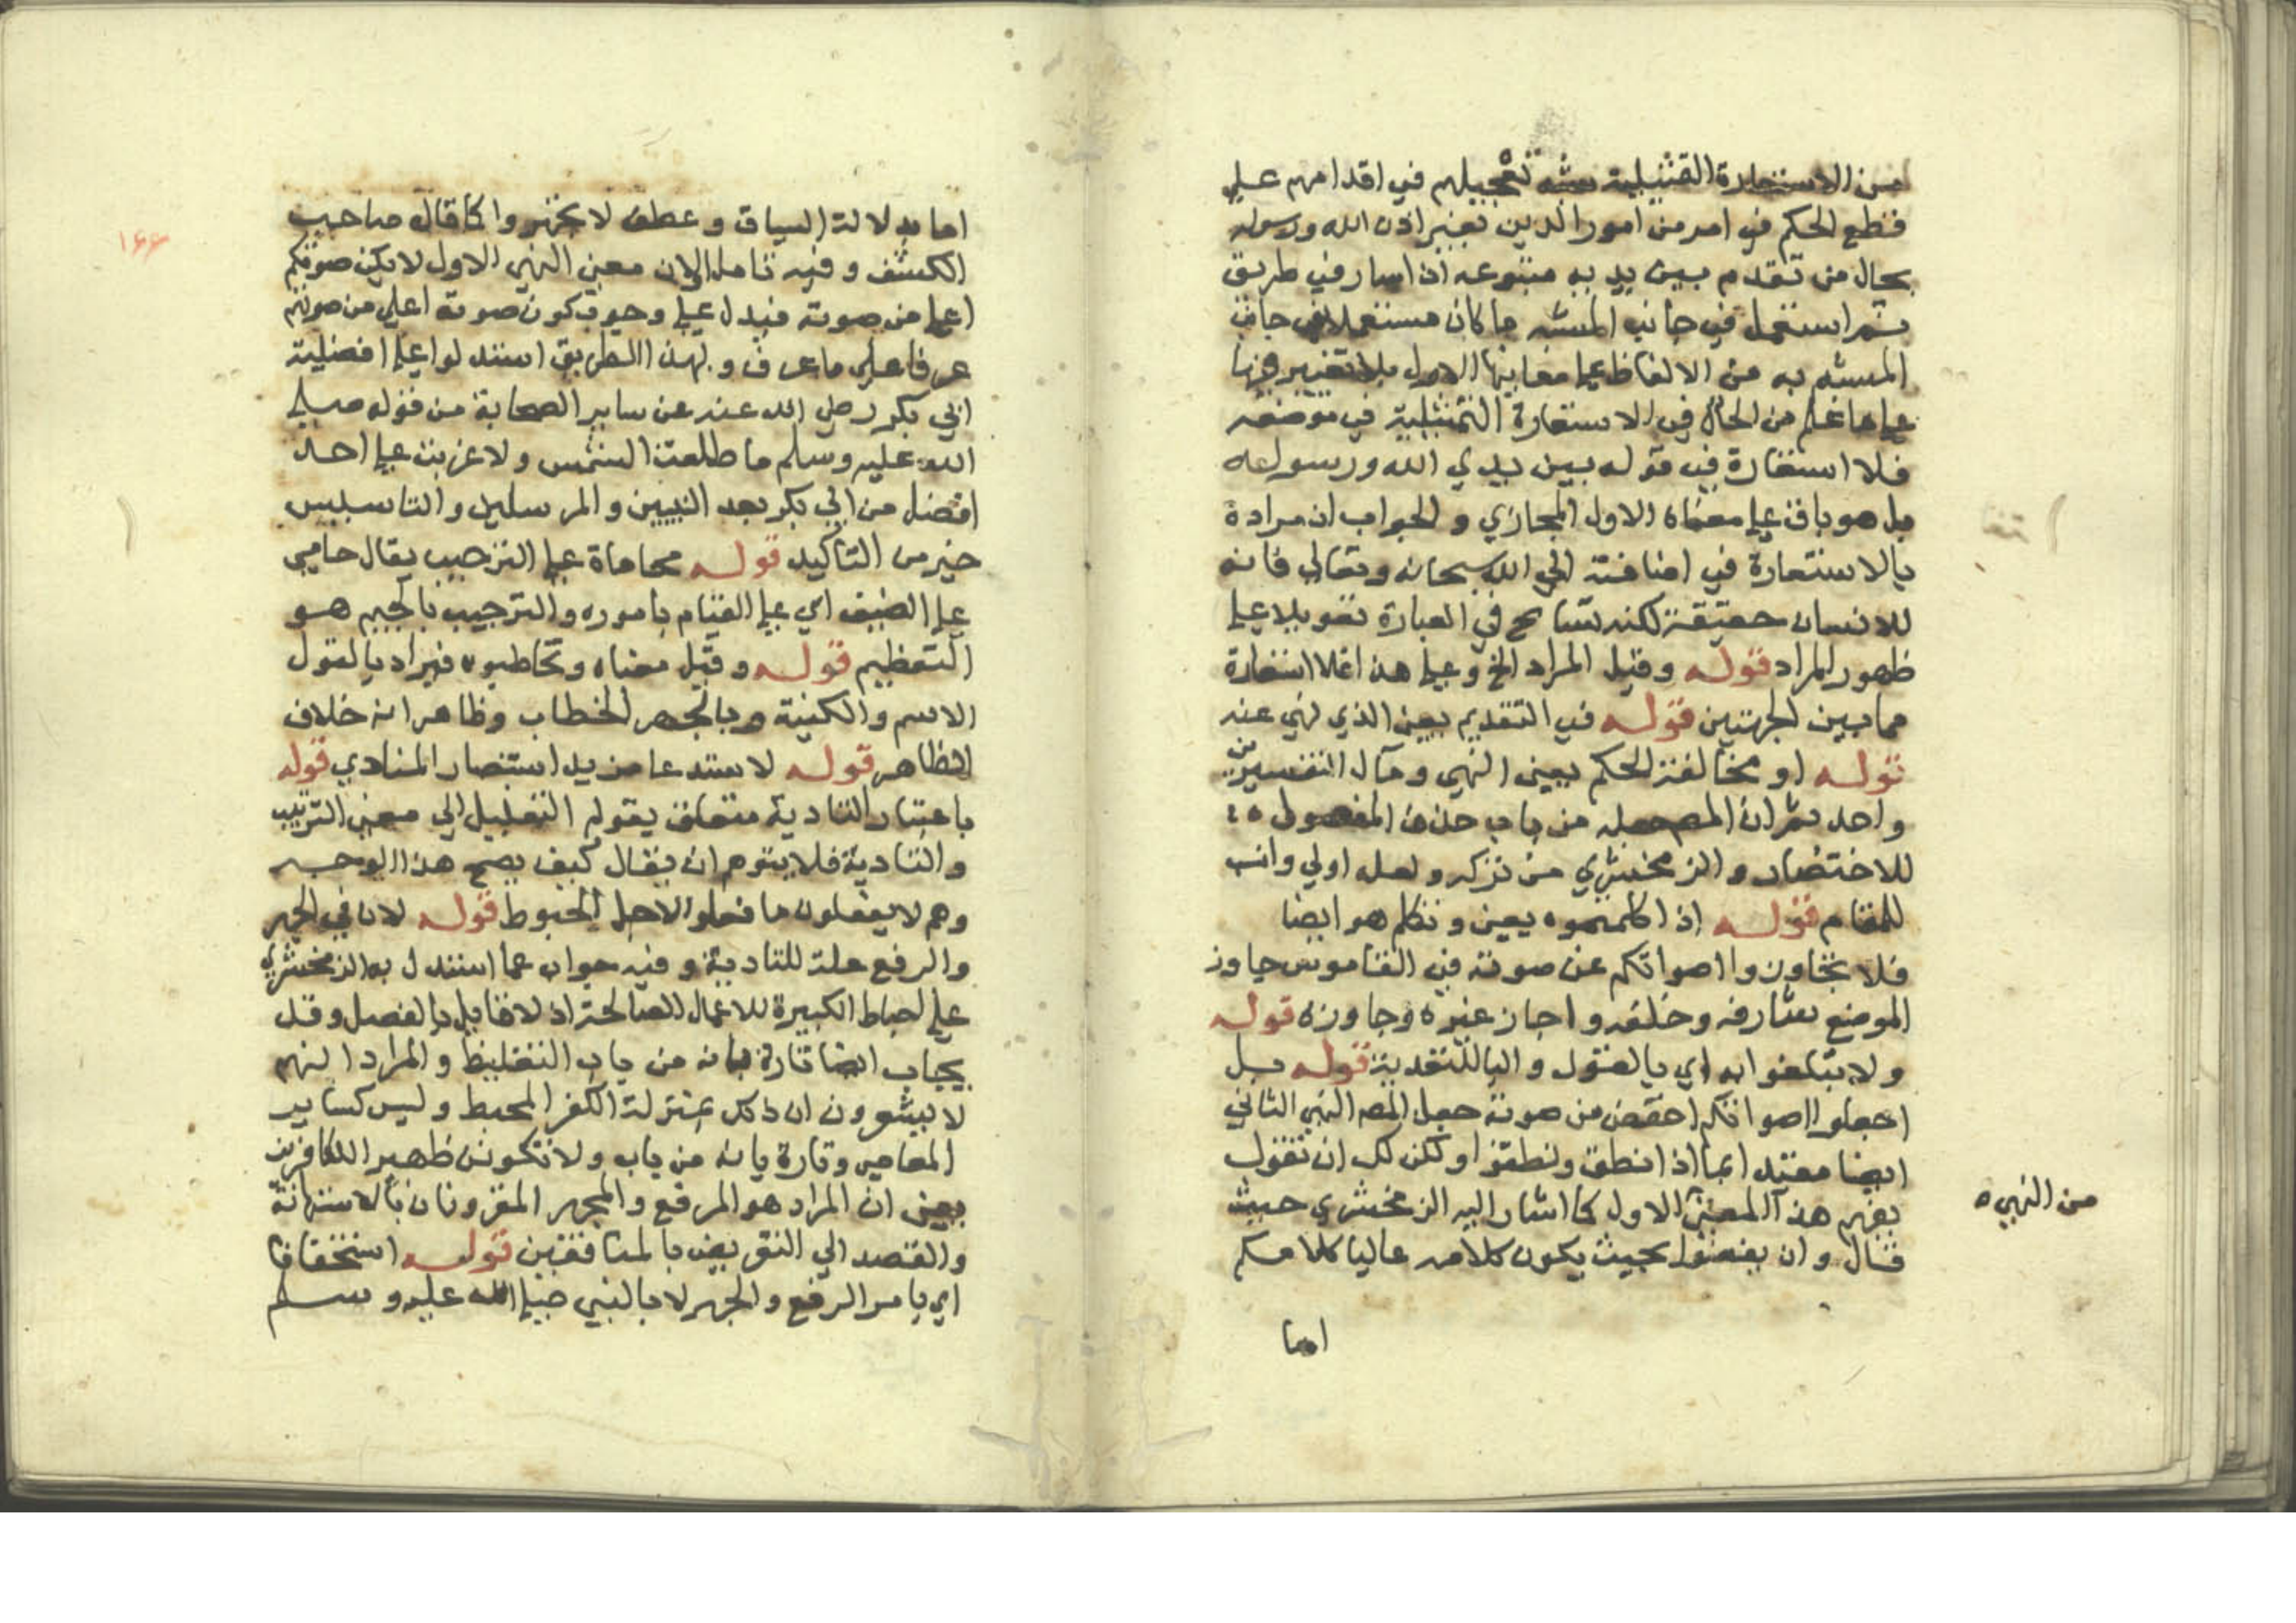 من الاستعارة التمثيلية شبه تعجيلهم في اقدامهم علي
قطع الحكم في امر من امور الدين بغير اذن الله ورسوله
بحال من تقدم بين يديه متبوعه اذا سار في طريق
ثم استعمل في جانب المشبه ما كان مستعملا في جانب
المشبه به من الالفاظ علي معانيها الاول بلا تغيير فيها
علي ما علم من الحال في الاستعارة التمثيلية في موضعه
فلا استعارة في قوله بين يدي الله ورسوله
بل هو باق علي معناه الاول المجازي والجواب ان مراده
بالاستعارة في اضافته الي الله سبحانه وتعالي فانه
للانسان حقيقة لكنه تسامح في العبارة تعويلا علي
ظهور المراد قوله وقيل المراد الخ وعلي هذا فلا استعارة
مما بين الجهتين قوله في التقديم يعني الذي نهي عنه
قوله او مخالفة الحكم يعني النهي ومآل التفسيرين
واحد ثم ان المص جعله من باب حذف المفعول
للاختصار والزمخشري من تركه ولعله اولي وانسب
للمقام قوله اذا كلمتموه يعني وتكلم هو ايضا
فلا تجاوزوا اصواتكم عن صوته في القاموس جاوز
الموضع سارفه وخلفه واجاز غيره وجاوزه قوله
ولا تبلغوا به اي بالقول والبا للتعدية قوله بل
اجعلوا اصواتكم اخفض من صوته جعل المص النهي الثاني
ايضا مقيد ابما اذا نطق ونطقوا ولكن لك ان تقول
يفهم هذا المعني الاول كما اشار اليه الزمخشري حيث
من النهي ه
قال وان يغضوا بحيث يكون كلامه عاليا كلامكم
اما
١٦٦
اما بدلالة السياق وعطف لا تجهروا كما قال صاحب
الكشف وفيه تامل لان معني النهي الاول لا يكن صوتكم
اعلي من صوته فيدل علي وجوب كون صوته اعلي من صوتهم
عرفا علي ما عرف وبهذا الطريق استدلوا علي افضلية
ابي بكر رضي الله عنه عن ساير الصحابة من قوله صلي
الله عليه وسلم ما طلعت الشمس ولا غربت علي احد
افضل من ابي بكر بعد النبيين والمرسلين والتاسيس
خير من التاكيد قوله محاماة علي الترحيب يقال حامي
علي الضيف اي علي القيام باموره والترجيب بالجيم هو
التعظيم قوله وقيل معناه وتخاطبوه فيراد بالقول
الاسم والكنية وبالجهر الخطاب وظاهر انه خلاف
الظاهر قوله لاستدعا مزيد استبصار المنادي قوله
باعتبار التادية متعلق بقولم التعليل الي معني الترتيب
والتادية فلا يتوهم ان يقال كيف يصح هذا الوجه
وهم لا يفعلون ما فعلوا لاجل الحبوط قوله لان في الجهر
والرفع علة للتادية وفيه جواب عما استدل به الزمخشري
علي احباط الكبيرة للاعمال الصالحة اذ لا قايل بالفصل وقد
يجاب ايضا تارة بانه من باب التغليظ والمراد انهم
لا يشعرون ان ذلك بمنزلة الكفر المحبط وليس كساير
المعاصي وتارة بانه من باب ولا تكونن ظهيرا للكافرين
يعني ان المراد هو الرفع والجهر المقرونان بالاستهانة
والقصد الي التعريض بالمنافقين قوله استخفافا
اي بامر الرفع والجهر لا بالنبي صلي الله عليه وسلم